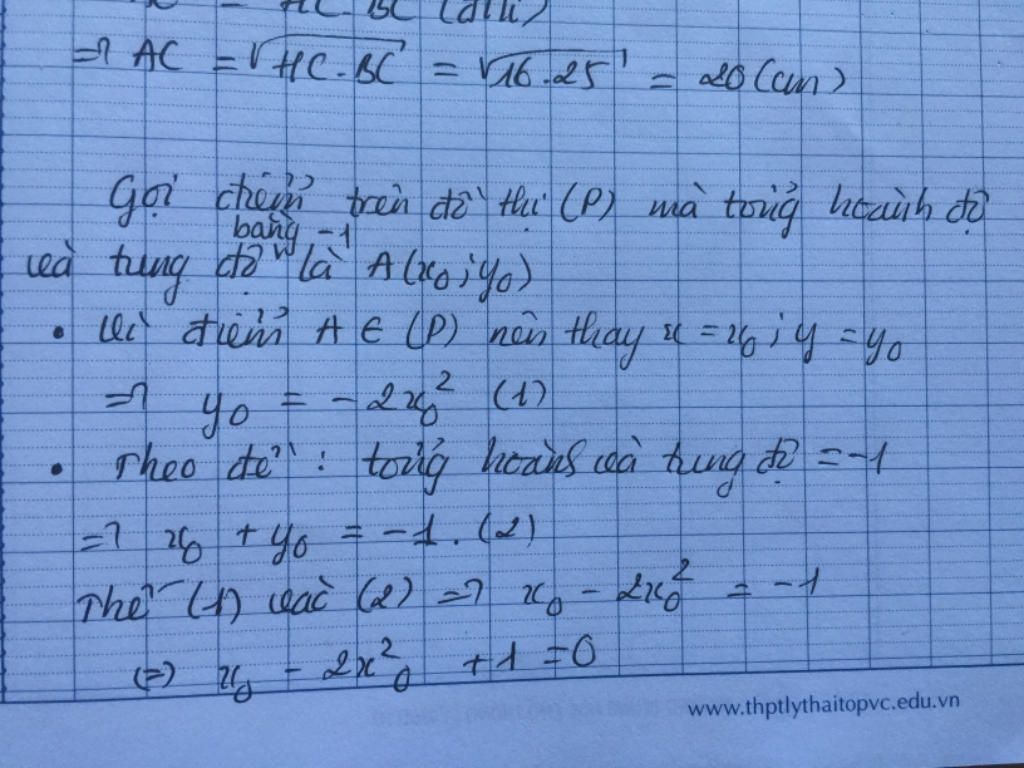 = HC.BC (đlí)
=> AC = √HC.BC = √16.25 = 20 (cm)
Gọi điểm trên đồ thị (P) mà tổng hoành độ
bằng -1
và tung độ là A(x₀;y₀)
• Vì điểm A ∈ (P) nên thay x = x₀; y = y₀
=> y₀ = -2x₀² (1)
• Theo đề: tổng hoành và tung độ = -1
=> x₀ + y₀ = -1. (2)
Thế (1) vào (2) => x₀ - 2x₀² = -1
(=) x₀ - 2x₀² + 1 = 0
www.thptlythaitopvc.edu.vn